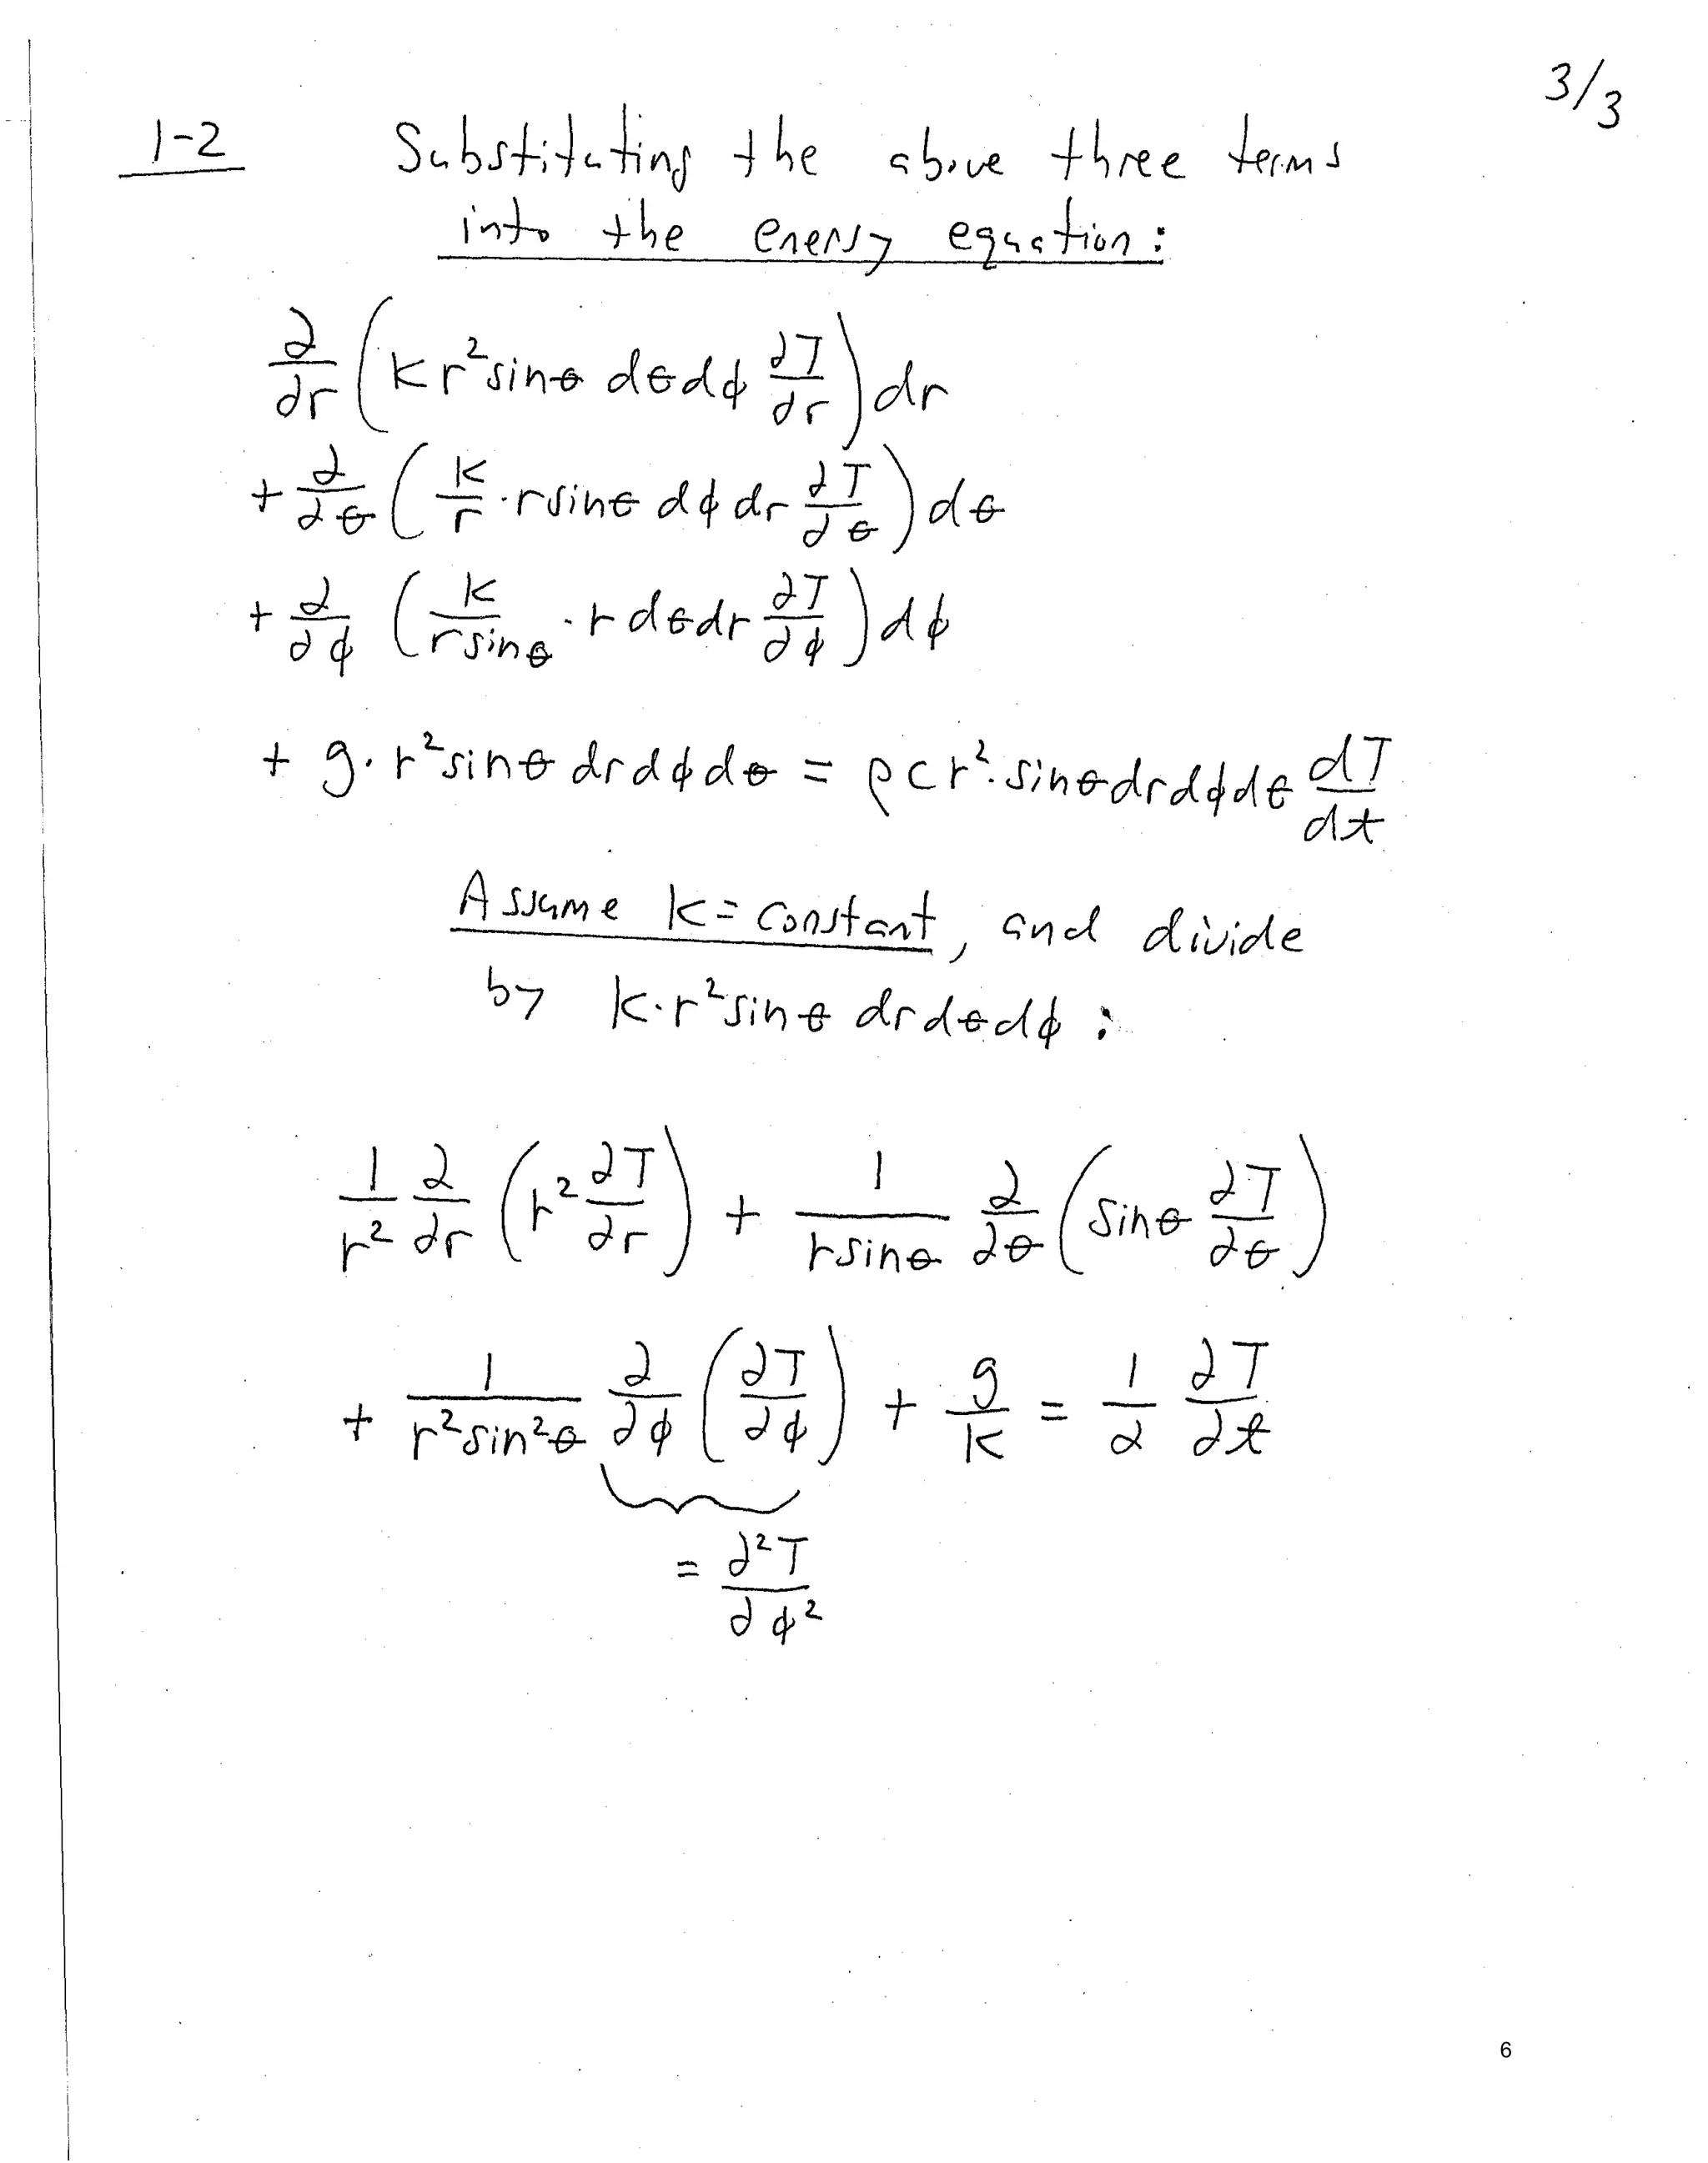 3/3
1-2 Substituting the above three terms
into the energy equation:
∂/∂r (k r² sinθ dθ dϕ ∂T/∂r) dr
+ ∂/∂θ (k/r · r sinθ dϕ dr ∂T/∂θ) dθ
+ ∂/∂ϕ (k/(r sinθ) · r dθ dr ∂T/∂ϕ) dϕ
+ g · r² sinθ dr dϕ dθ = ρ c r² · sinθ dr dϕ dθ dT/dt
Assume k = constant, and divide
by k · r² sinθ dr dθ dϕ :
1/r² ∂/∂r (r² ∂T/∂r) + 1/(r sinθ) ∂/∂θ (sinθ ∂T/∂θ)
+ 1/(r² sin²θ) ∂/∂ϕ (∂T/∂ϕ) + g/k = 1/α ∂T/∂t
= ∂²T/∂ϕ²
6